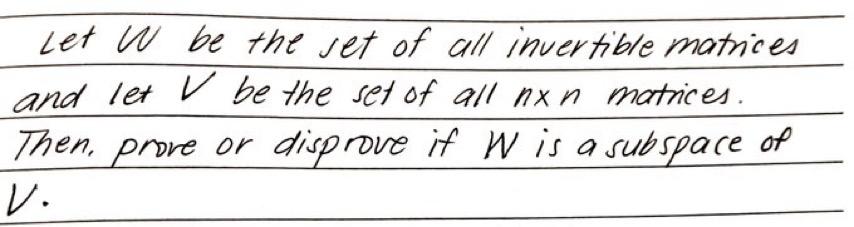 Let W be the set of all invertible matrices
and let V be the set of all nxn matrices.
Then, prove or disprove if W is a subspace of
V.